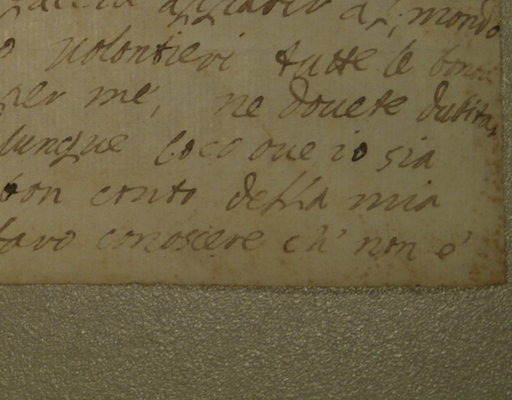 mondo
volontieri tutte le
per me, ne douete dubitar
unque loco oue io sia
bon conto della mia
faro conoscere ch' non è